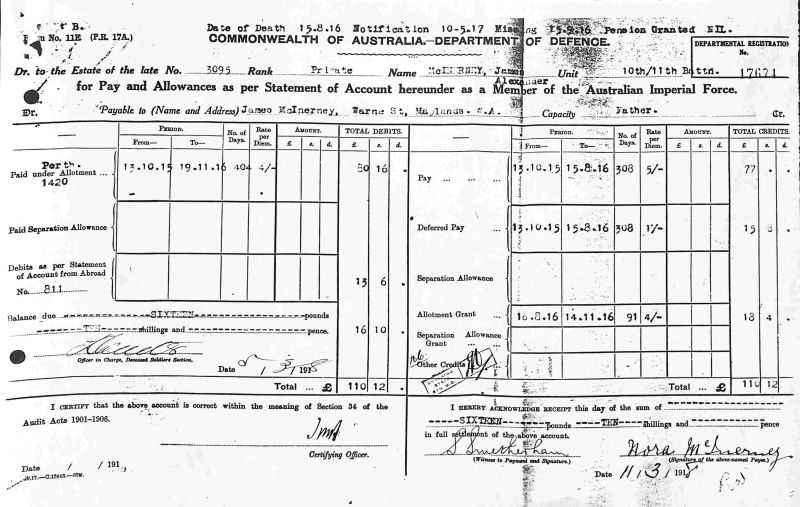 Date of Death 15.8.16 Notification 10-5.17 Missing 15.8.16 Pension Granted NIL.
B.
No. 11E (P.R. 17A.)
COMMONWEALTH OF AUSTRALIA.—DEPARTMENT OF DEFENCE.
DEPARTMENTAL REGISTRATION
No.
17671
Dr. to the Estate of the late No. 3095 Rank Private Name McINERNEY, James Alexander Unit 10th/11th Battn.
for Pay and Allowances as per Statement of Account hereunder as a Member of the Australian Imperial Force.
Dr. Payable to (Name and Address) James McInerney, Warne St, Maylands. W.A. Capacity Father. Cr.
PERIOD. No. of Days. Rate per Diem. AMOUNT. TOTAL DEBITS.
From— To— £ s. d. £ s. d.
PERIOD. No. of Days. Rate per Diem. AMOUNT. TOTAL CREDITS.
From— To— £ s. d. £ s. d.
Perth.
Paid under Allotment ... 13.10.15 19.11.16 404 4/- 80 16 .
1420
Pay ... ... ... 13.10.15 15.8.16 308 5/- 77 . .
Paid Separation Allowance
Deferred Pay ... ... 13.10.15 15.8.16 308 1/- 15 8 .
Debits as per Statement
of Account from Abroad
No. 811 13 6 .
Separation Allowance
Allotment Grant ... 16.8.16 14.11.16 91 4/- 18 4 .
Balance due SIXTEEN pounds
TEN shillings and pence. 16 10 .
Separation Allowance
Grant ... ... ...
Other Credits
Officer in Charge, Deceased Soldiers Section.
Date / 3/ 1918
Total ... £ 110 12 .
Total ... £ 110 12
I CERTIFY that the above account is correct within the meaning of Section 34 of the
Audit Acts 1901–1906.
Certifying Officer.
Date / / 191
I HEREBY ACKNOWLEDGE RECEIPT this day of the sum of
SIXTEEN pounds TEN shillings and pence
in full settlement of the above account.
S Smetherham Nora McInerney
(Witness to Payment and Signature.) (Signature of the above-named Payee.)
Date 11/3/ 1918